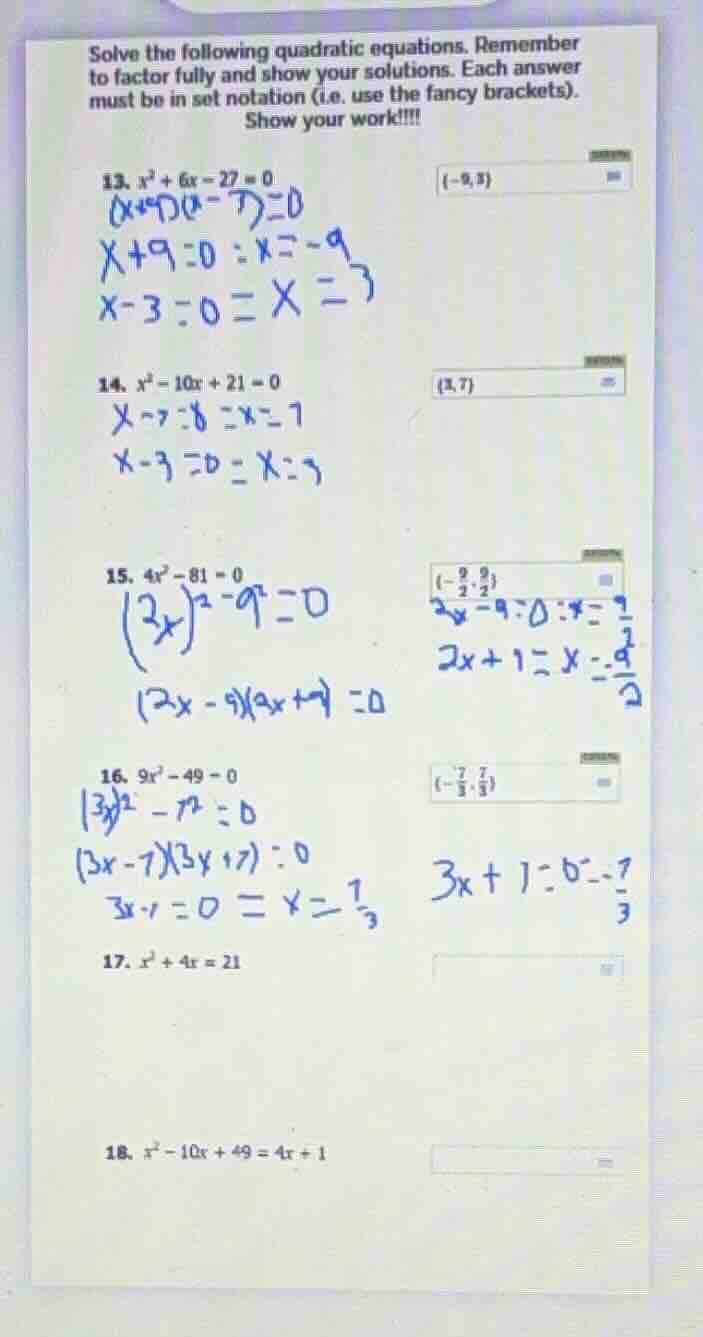 Solve the following quadratic equations. Remember
to factor fully and show your solutions. Each answer
must be in set notation (i.e. use the fancy brackets).
Show your work!!!!
13. x² + 6x − 27 = 0
{−9, 3}
(x+9)(x−7)=0
x+9=0 = x=−9
x−3=0 = x=3
14. x² − 10x + 21 = 0
{3, 7}
x−7=0 = x=7
x−3=0 = x=3
15. 4x² − 81 = 0
{−9/2, 9/2}
(2x)²−9²=0
2x−9=0 = x=9/2
2x+9= x=−9/2
(2x−9)(2x+9)=0
16. 9x² − 49 = 0
{−7/3, 7/3}
(3x)²−7²=0
(3x−7)(3x+7)=0
3x−7=0 = x=7/3
3x+7=0=−7/3
17. x² + 4x = 21
18. x² − 10x + 49 = 4x + 1